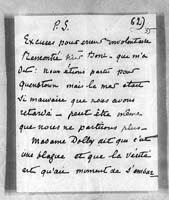 P.S.
62)
Excuses pour erreur involontaire
Rencontré Boni. qui m'a
dit: Nous étions partis pour
Queenstown mais la mer était
si mauvaise que nous avons
retardé - peut être même
que nous ne partirons plus -
Madame Dolby dit que c'est
une blague et que la vérité
est qu'au moment de s'embar